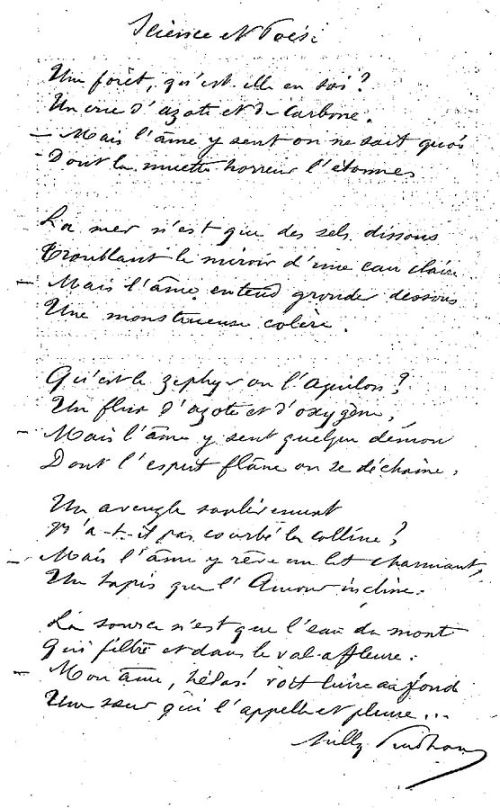 Science et Poési
Une forêt, qu'est-elle en soi ?
Un crue d'azote et de carbone.
— Mais l'âme y sent on ne sait quoi
Dont la muette horreur l'étonne.
La mer n'est que des sels dissous
Troublant le miroir d'une eau claire
— Mais l'âme entend gronder dessous
Une monstrueuse colère.
Qu'est le zéphyr ou l'Aquilon ?
Un flux d'azote et d'oxygène,
— Mais l'âme y sent quelque démon
Dont l'esprit flâne ou se déchaîne.
Un aveugle soulèvement
N'a-t-il pas courbé la colline ?
— Mais l'âme y rêve un lit charmant,
Un tapis que l'Amour incline.
La source n'est que l'eau du mont
Qui filtre et dans le val affleure.
— Mon âme, hélas ! voit luire au fond
Une sœur qui l'appelle et pleure...
Sully Prudhomme